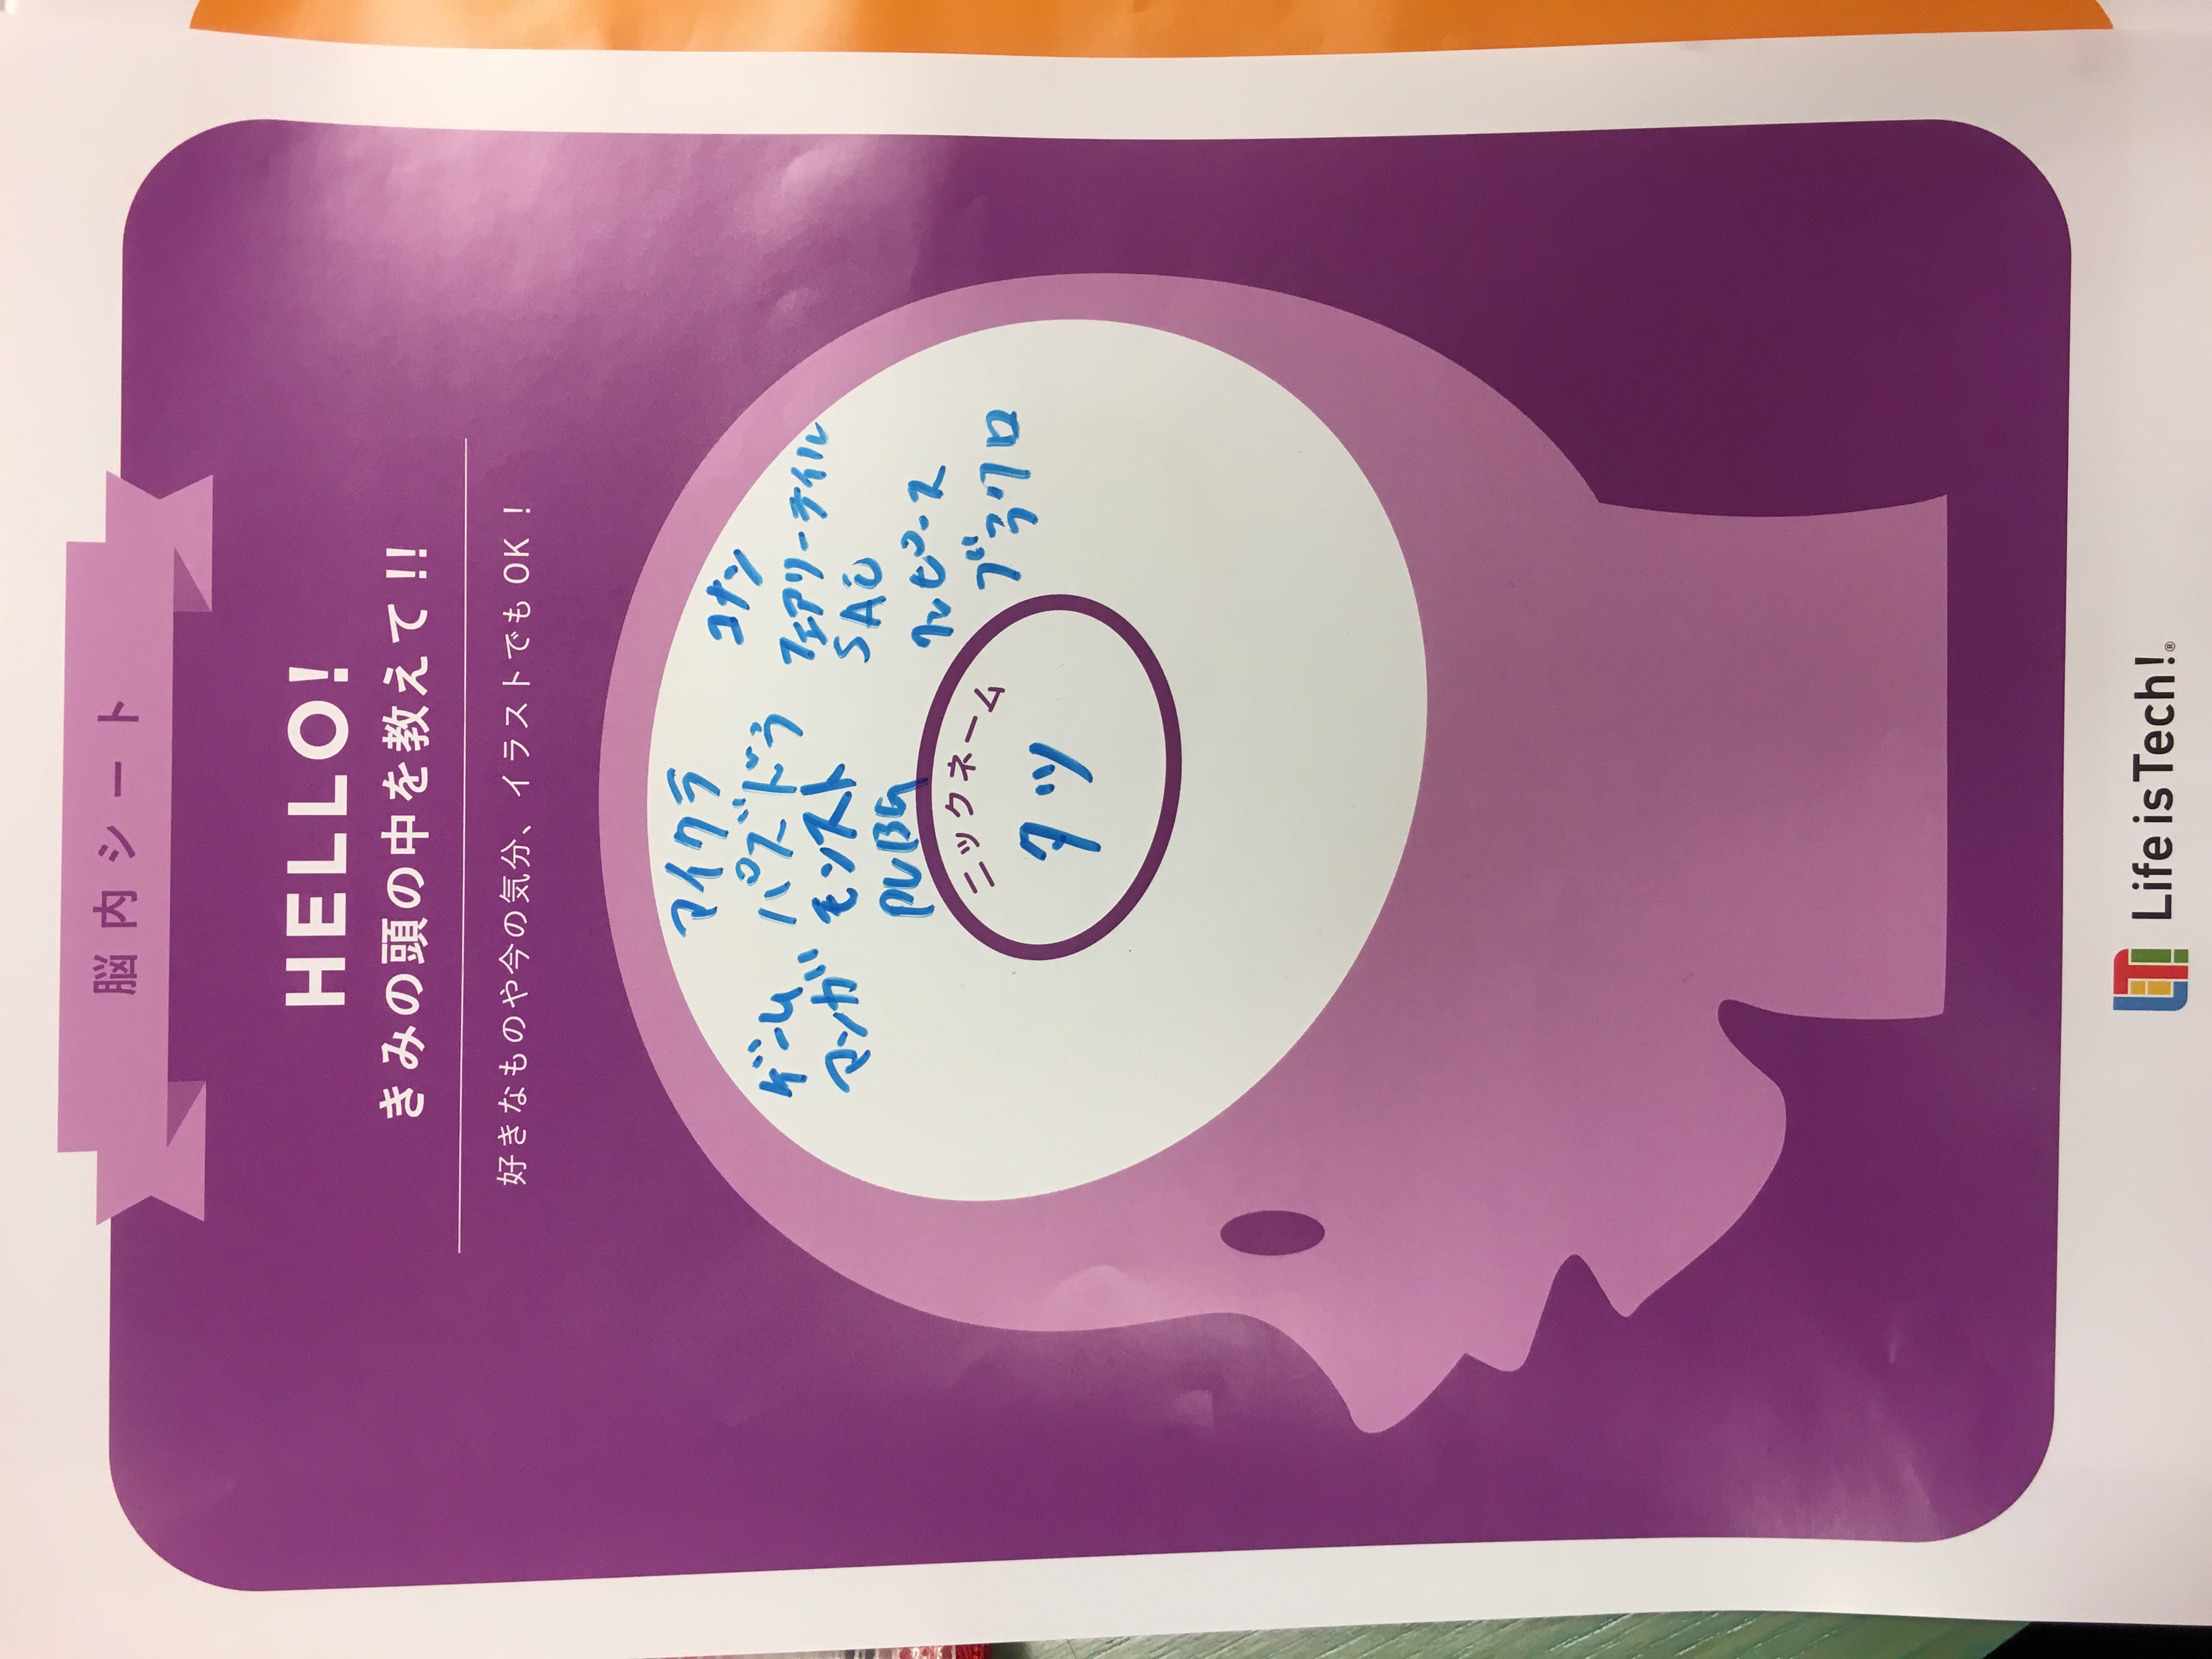 脳内シート
HELLO!
きみの頭の中を教えて!!
好きなものや今の気分、イラストでもOK！
ゲーム
マンガ
マイクラ
パズドラ
モンスト
PUBG
コナン
フェアリーテイル
SAO
ワンピース
ブラクロ
ニックネーム
タツ
Life is Tech!®